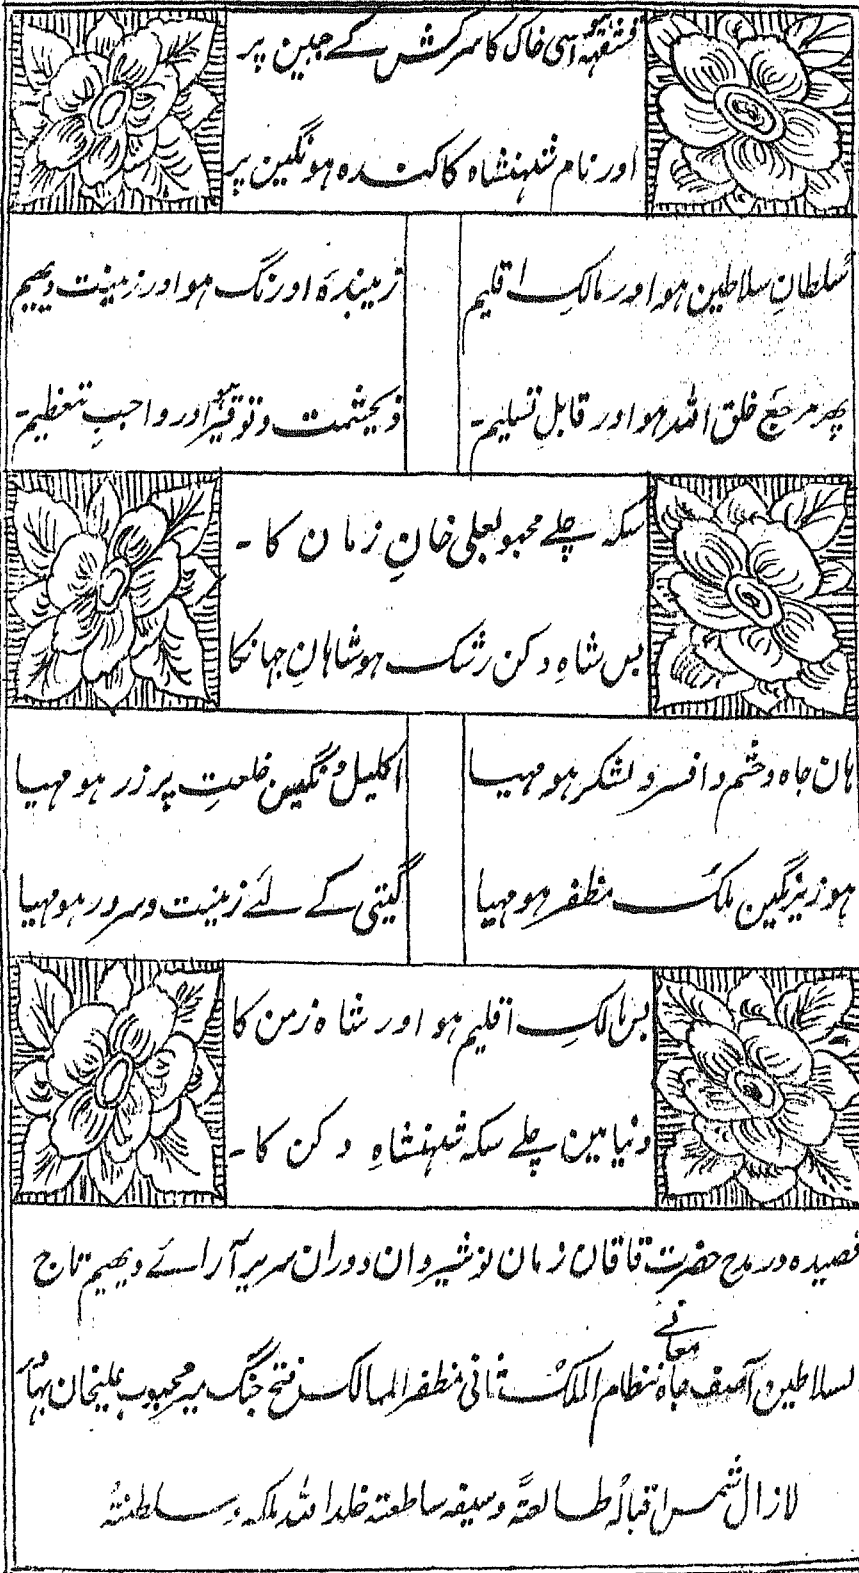 قشقہ ہو اسی خاک کا سرکش کے جبین پر
اور نام شہنشاہ کا کندہ ہو نگین پر
سُلطانِ سلاطین ہو اور مالکِ اقلیم
زیبندۂ اورنگ ہو اور زینت دیہیم
پھر مرجع خلق اللہ ہو اور قابلِ تسلیم۔
ذیحشمت و توقیر ہو اور واجبِ تعظیم۔
سکہ چلے محبوبعلی خانِ زمان کا۔
بس شاہِ دکن رشک ہو شاہانِ جہانکا
ہان جاہ و حشم و افسر و لشکر ہو مہیا
اکلیل و نگین خلعتِ پر زر ہو مہیا
ہو زیر نگین ملک مظفر ہو مہیا
گیتی کے لئے زینت و سرور ہو مہیا
بس مالکِ اقلیم ہو اور شاہ زمن کا
دنیا مین چلے سکہ شہنشاہِ دکن کا۔
قصیدہ در مدح حضرت قاقان زمان نوشیروان دوران سریر آرائے دیہیم تاج
لسلاطین آصف جاہ نظام الملک ثانی مظفر الممالک فتح جنگ میر محبوب علیخان بہادر
لازال شمس اقبالہ طالعۃً وسیفہ ساطعتہ خلد اللہ ملکہ وسلطنتہُ